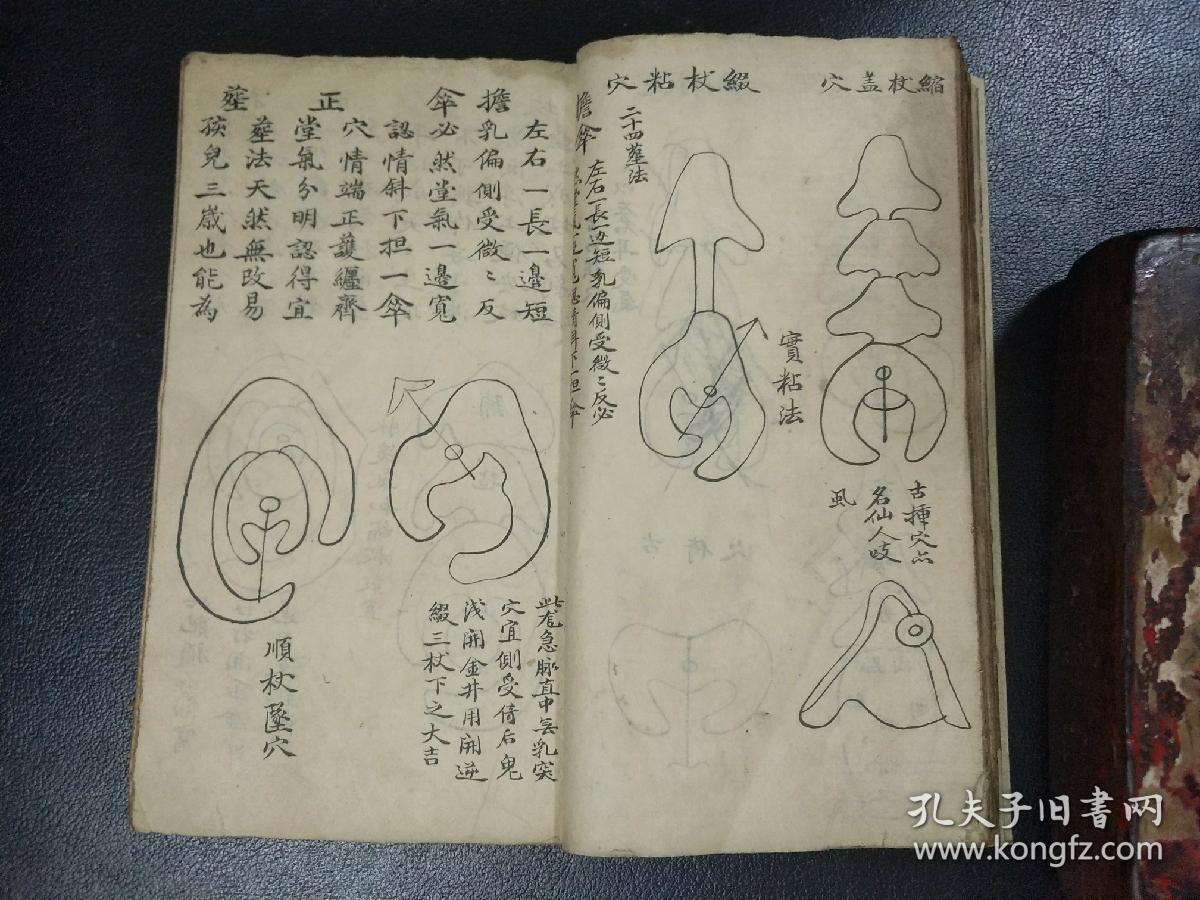 縮杖盖穴
古揷穴点
名仙人岐
風
綴杖粘穴
實粘法
二十四塟法
左右一長一边短乳偏側受微〻反必
擔傘
擔傘
左右一長一邊短
乳偏側受微〻反
必然堂氣一邊寬
認情斜下担一傘
正塟
穴情端正護纏齊
堂氣分明認得宜
塟法天然無改易
孩兒三歲也能為
穴宜側受倚后鬼
浅開金井用開逆
綴三杖下之大吉
順杖墜穴
孔夫子旧書网
www.kongfz.com